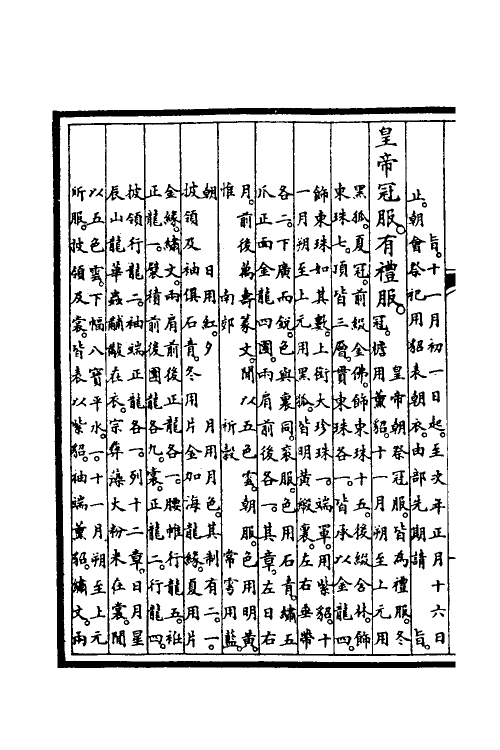 旨。十一月初一日起。至次年正月十六日
止。朝會祭祀用貂表朝衣。由部先期請 旨。
皇帝冠服。有禮服。
皇帝朝祭冠服。皆為禮服。冬
冠。檐用薰貂。十一月朔至上元用
黑狐。夏冠。前綴金佛。飾東珠十五。後綴舍林。飾
東珠七。頂皆三層。貫東珠各一。皆承以金龍四。
飾東珠如其數。上銜大珍珠一。端罩用紫貂。十
一月朔至上元用黑狐。皆明黃緞裏。左右垂帶
各二。下廣而銳。色與裏同。袞服。色用石青。繡五
爪正面金龍四團。兩肩前後各一。其章左日右
月。前後萬壽篆文。間以五色雲。朝服。色用明黃。
惟 南郊 祈穀 常雩用藍。
朝 日用紅。夕 月用月色。其制有二。一
披領及袖俱石青。冬用片金加海龍緣。夏用片
金緣。繡文。兩肩前後正龍各一。腰帷行龍五。衽
正龍一。襞積前後團龍各九。裳正龍二。行龍四。
披領行龍二。袖端正龍各一。列十二章。日月星
辰山龍華蟲黼黻在衣。宗彝藻火粉米在裳。間
以五色雲。下幅八寶平水。一十一月朔至上元
所服。披領及裳。皆表以紫貂。袖端薰貂。繡文。兩